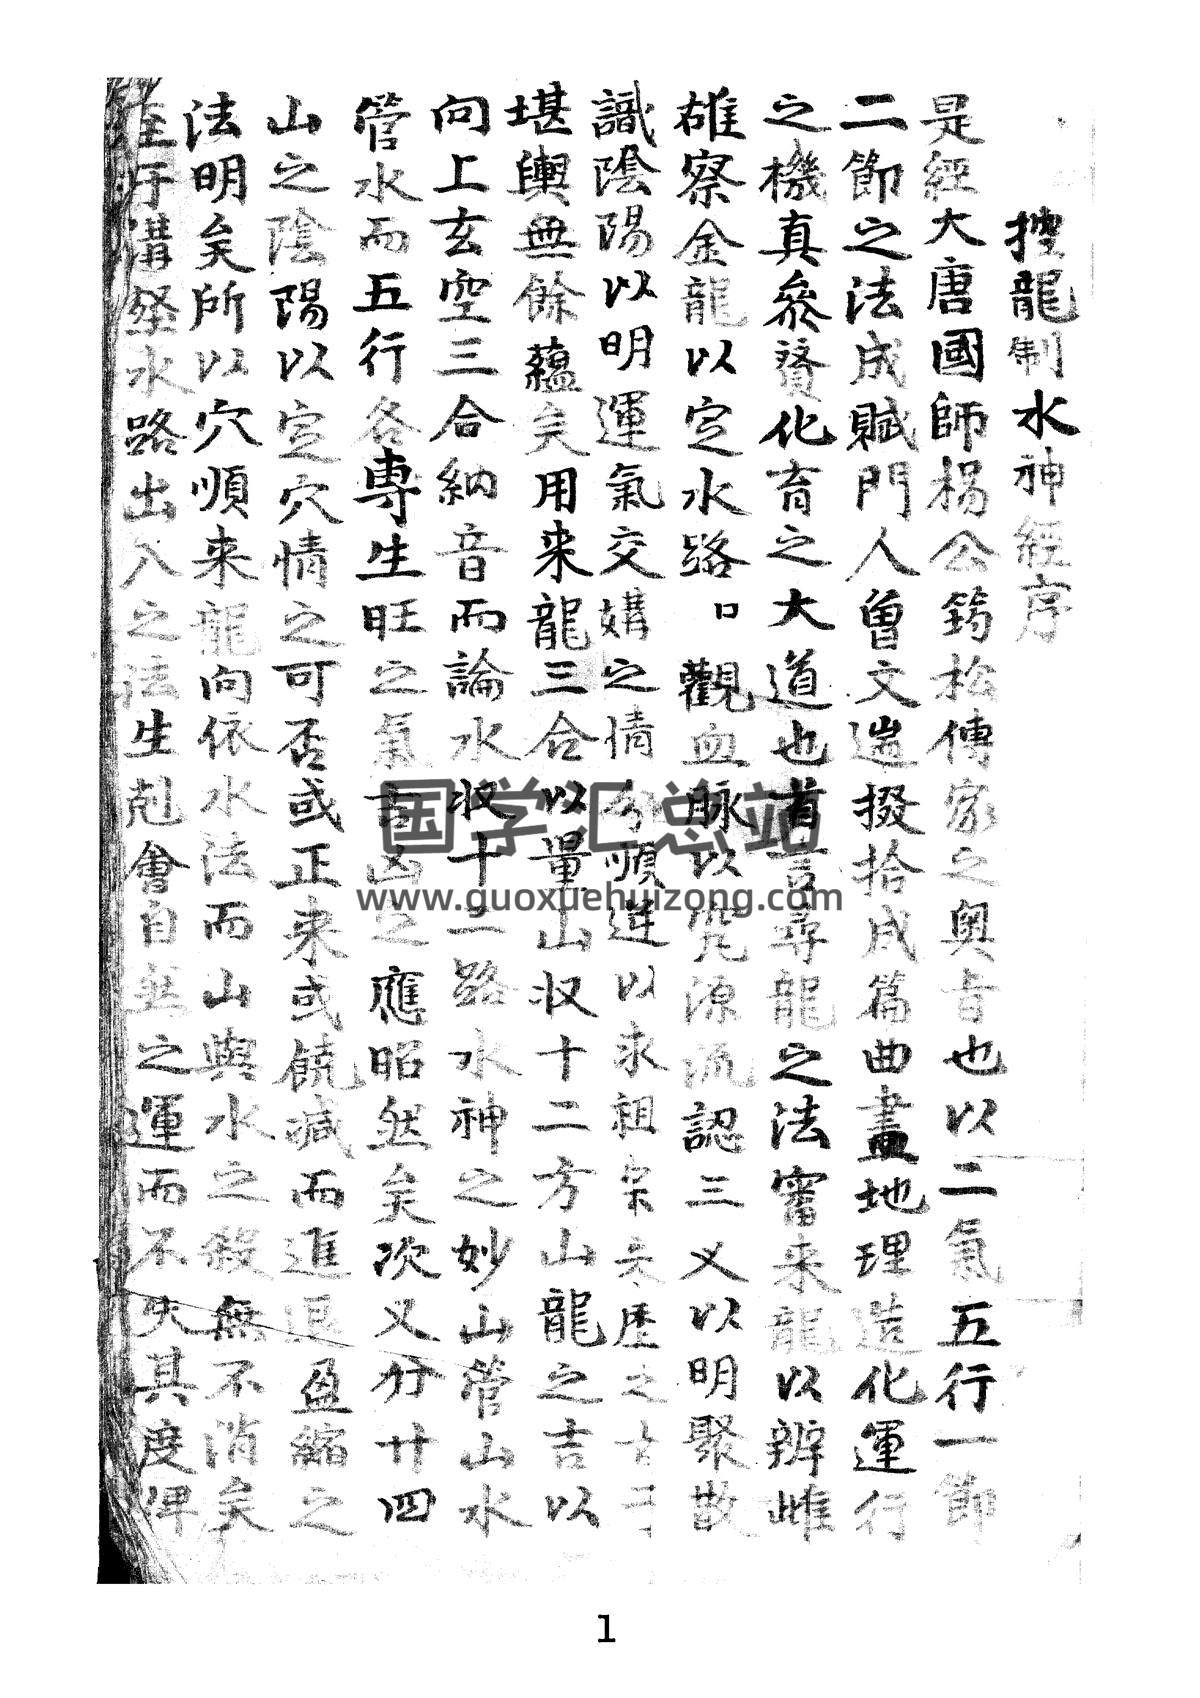 控龍制水神經序
是經大唐國師楊公筠松傳家之奧旨也以二氣五行一節
二節之法成賦門人曾文遄掇拾成篇曲盡地理造化運行
之機真叅賛化育之大道也首言尋龍之法審来龍以辨雌
雄察金龍以定水路口觀血脉以究源流認三义以明聚散
識陰陽以明運氣交媾之情分順逆以求祖宗来歴之
堪輿無餘蘊矣用来龍三合以量山収十二方山龍之吉以
向上玄空三合納音而論水収十二路水神之妙山管山水
管水而五行各専生旺之氣吉凶之應昭然矣次又分廿四
山之陰陽以定穴情之可否或正来或饒减而進退盈縮之
法明矣所以穴順来龍向依水法而山與水之殺無不消矣
至于溝壑水路出入之法生尅會自然之運而不失其度俾
国学汇总站
www.guoxuehuizong.com
1